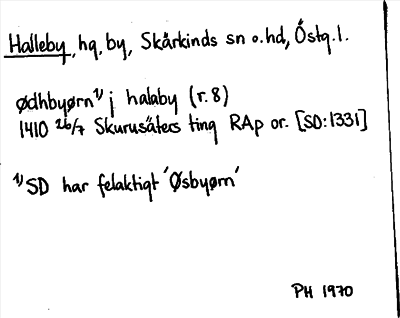 Halleby, hg, by, Skärkinds sn o. hd, Östg. l.
ødhbyørn¹⁾ j halaby (r. 8)
1410 26/7 Skurusäters ting RAp or. [SD: 1331]
¹⁾ SD har felaktigt 'Øsbyørn'
PH 1970